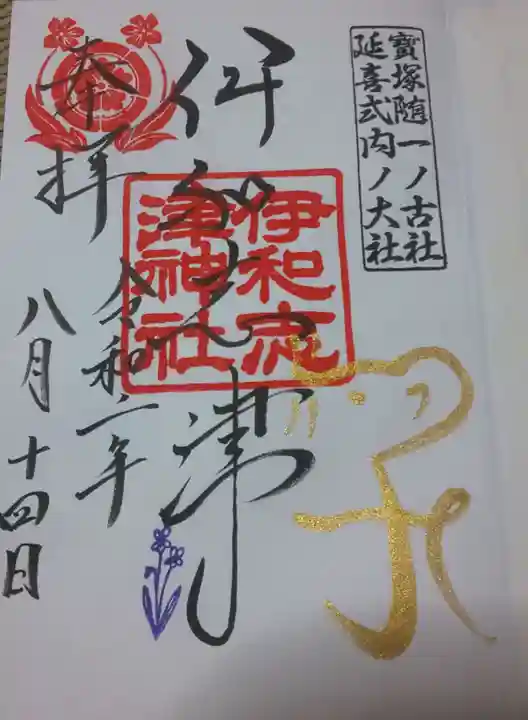 寶塚随一ノ古社
延喜式内ノ大社
伊和志津
伊和志
津神社
子
奉拝
令和二年
八月十四日